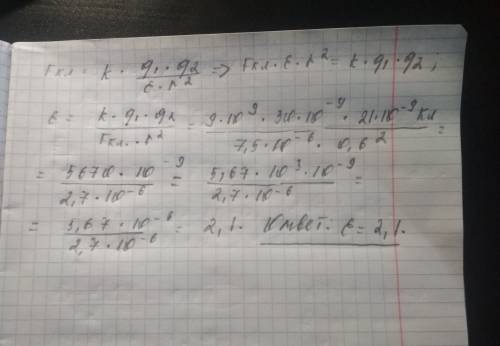 Fкл = k · q₁ · q₂ / ε · r² => Fкл · ε · r² = k · q₁ · q₂ ;
ε = k · q₁ · q₂ / Fкл. · r² = 9 · 10⁹ · 30 · 10⁻⁹ · 21 · 10⁻⁹ Кл / 7,5 · 10⁻⁶ · 0,6² =
= 5670 · 10⁻⁹ / 2,7 · 10⁻⁶ = 5,67 · 10³ · 10⁻⁹ / 2,7 · 10⁻⁶ =
= 5,67 · 10⁻⁶ / 2,7 · 10⁻⁶ = 2,1. Ответ: ε = 2,1.